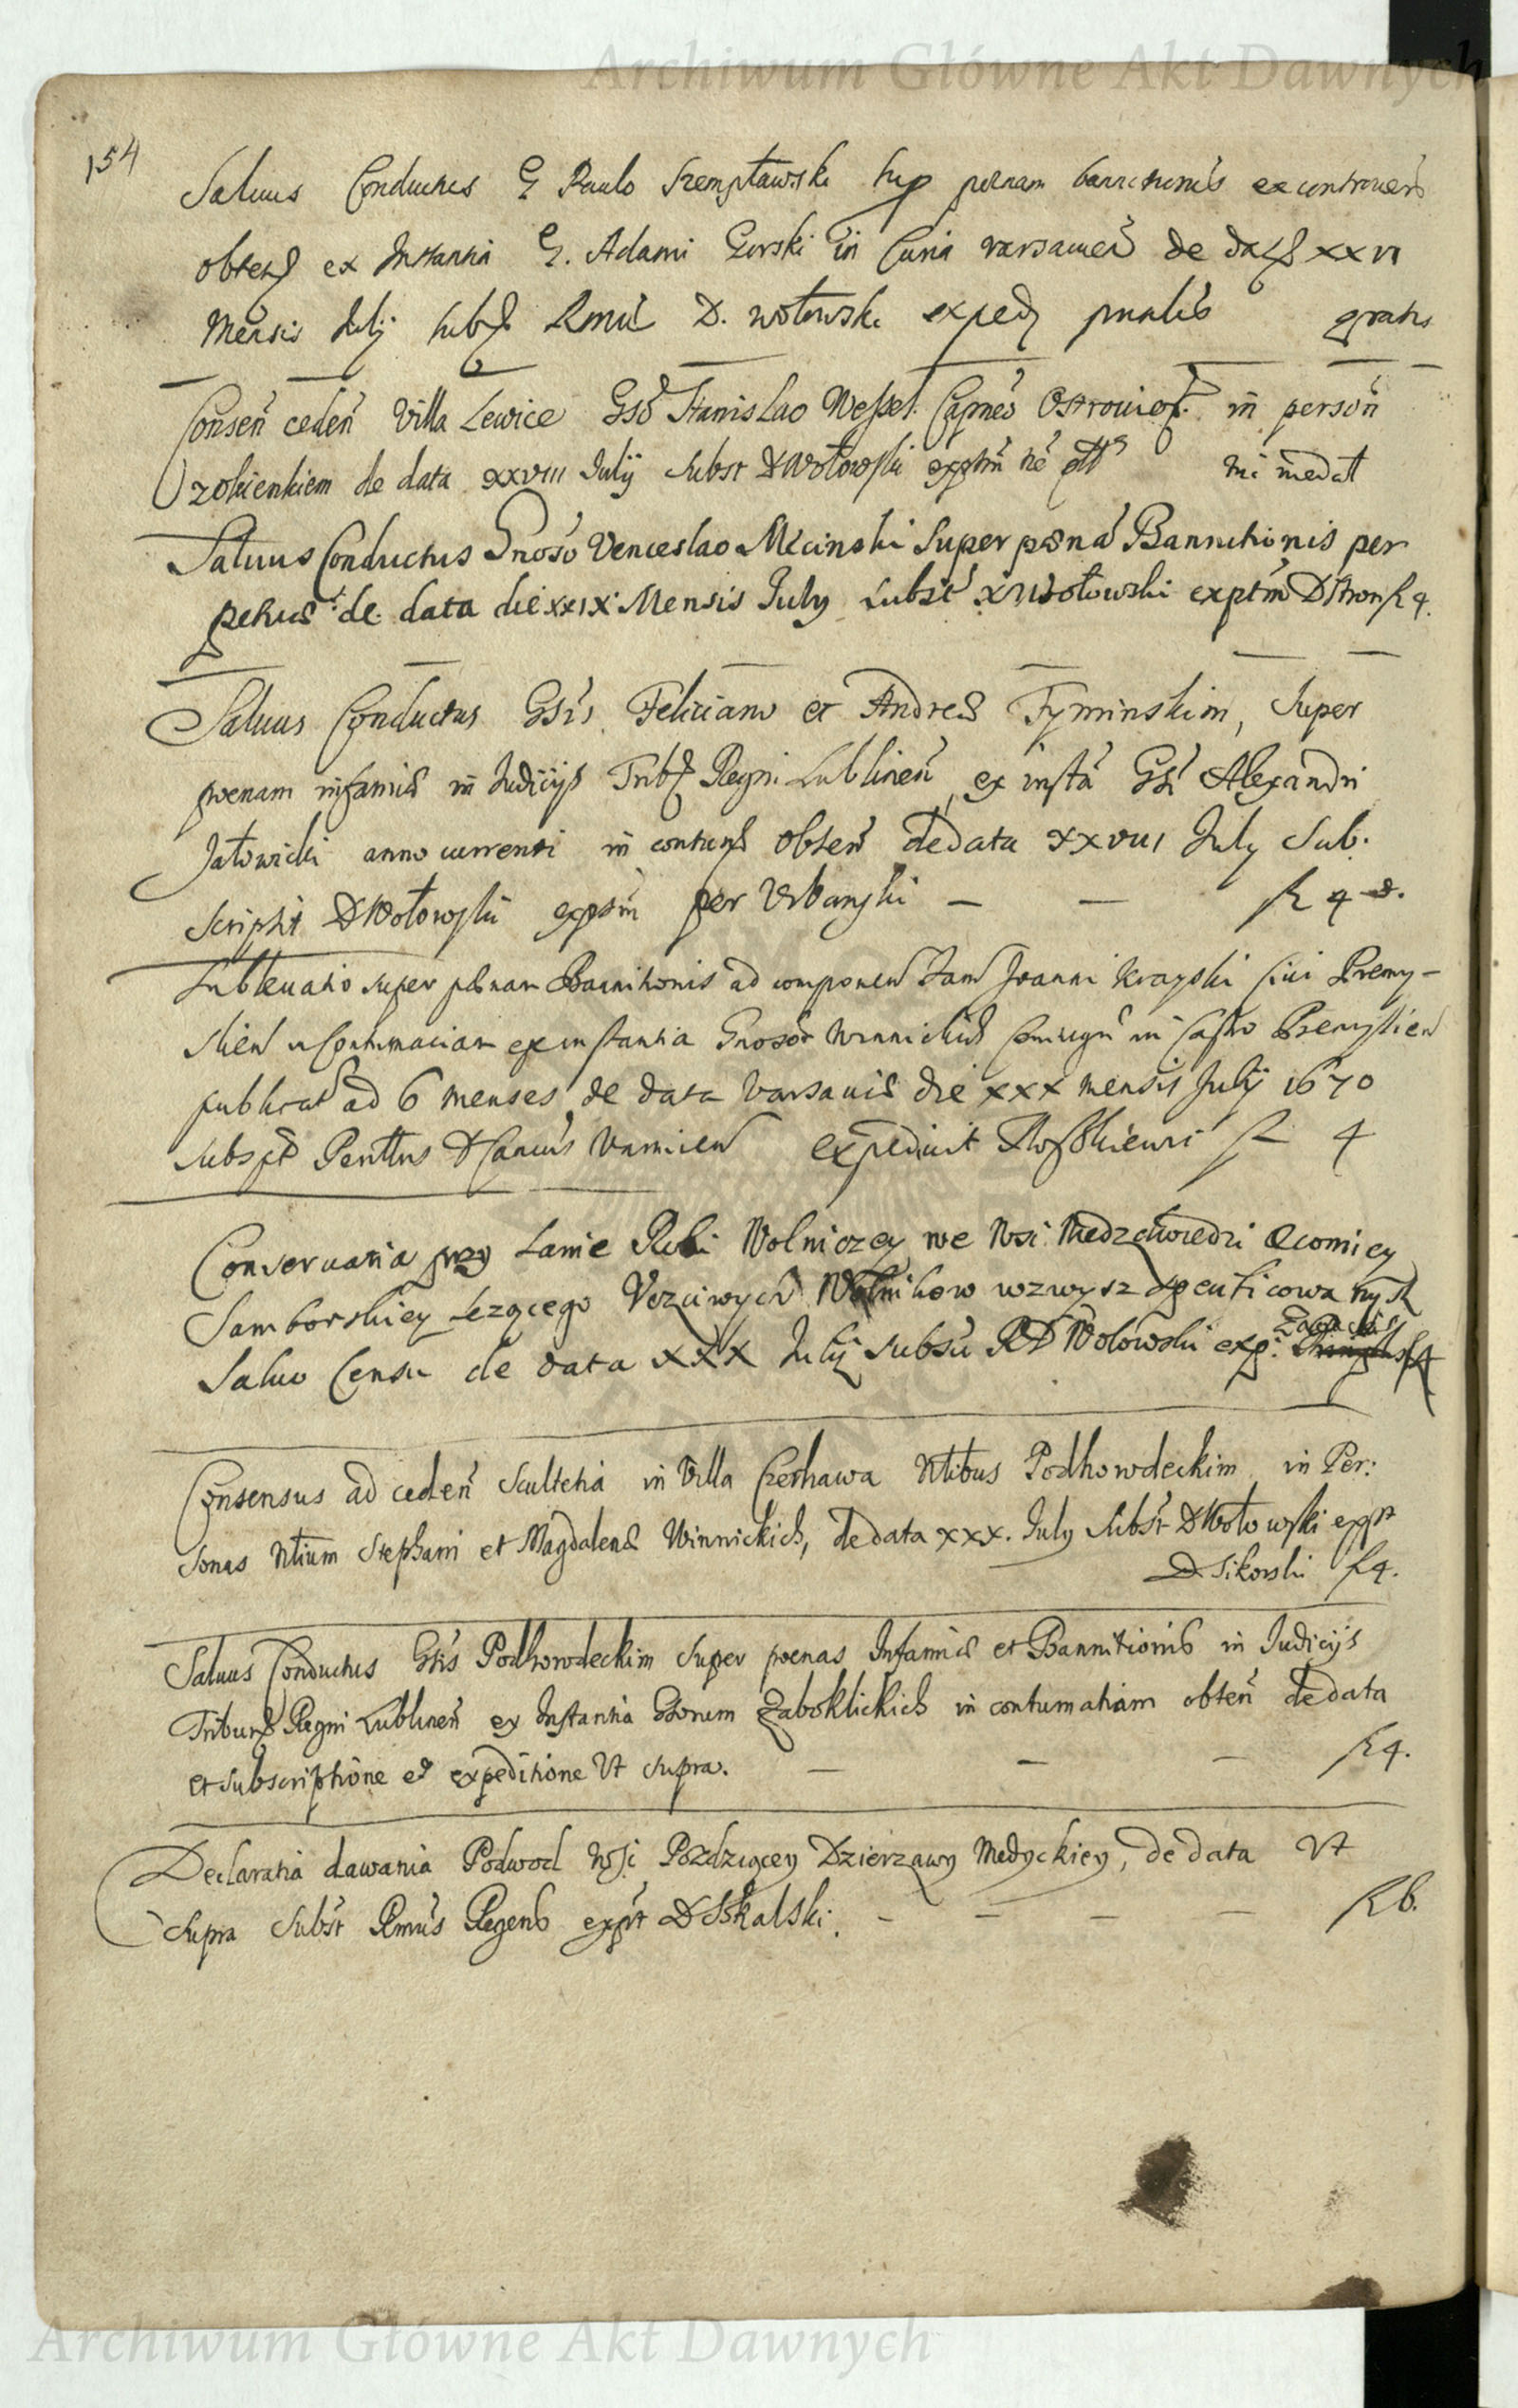 Archiwum Główne Akt Dawnych
154
Salvus Conductus G Paulo Szempławski sup poenam bannitionis ex controvers
obten ex Instantia G. Adami Gorski in Curia varsavien de data XXVI
Mensis Julij subs Rmi D. wołowski exped gratis
Consen ceden Villa Lewice Gso Stanislao Wessel Capneo Ostrovien in person
de data XXVIII Julij Subst D Wołowski exptm
Salvus Conductus Gnoso Venceslao Mecinski Super poena Bannitionis per
petuae de data die XXIX Mensis July subst Wołowski exptm D f 4.
Salvus Conductus Gsis Feliciano et Andreae Tyminskim, Super
poenam infamiae in Judicijs Trib Regni Lublinen ex insta Gsi Alexandri
Jałowicki anno currenti in contum obten de data XXVIII July Sub.
scripti D Wołowski exptm per Urbanski — — f 4
Sublevatio super poenam Bannitionis ad componen Fam Joanni Krayski civi Premy-
slien in Contumaciam ex instantia Gnosor Winnickich Coniugu in Castro Premyslien
publicat ad 6 menses de data Varsaviae die XXX mensis Julij 1670
subspt Perills D Cancus Varmien expedivit f 4
Conservatia przy Lanie Roli Wolniczey we Wsi Niedzdwiedzi Oecomiey
Samborskiey Lezącego Uczciwych Wolnikow wzwysz specificowanych
Salvo Censu de data XXX Julij subsu RD Wołowski exp: Zawacki f 4
Consensus ad ceden Scultetia in Villa Czerhawa Ntibus Podhowdeckim in Per:
sonas Ntium Stephani et Magdalenae Winnickich, de data XXX. July Subst D Wołowski expt
D Sikorski f 4.
Salvus Conductus Gsis Podhowdeckim super poenas Infamiae et Bannitionis in Judicijs
Tribun Regni Lublinen ex Instantia Gsorum Zaboklickich in contumatiam obten de data
et subscriptione et expeditione Ut supra. — — — f 4.
Declaratia dawania Podwod Wsi Pozdziącey Dzierzawy Medyckiey, de data Ut
supra Subst Rmus Regens expt D Skalski. — — — — f 6.
Archiwum Główne Akt Dawnych